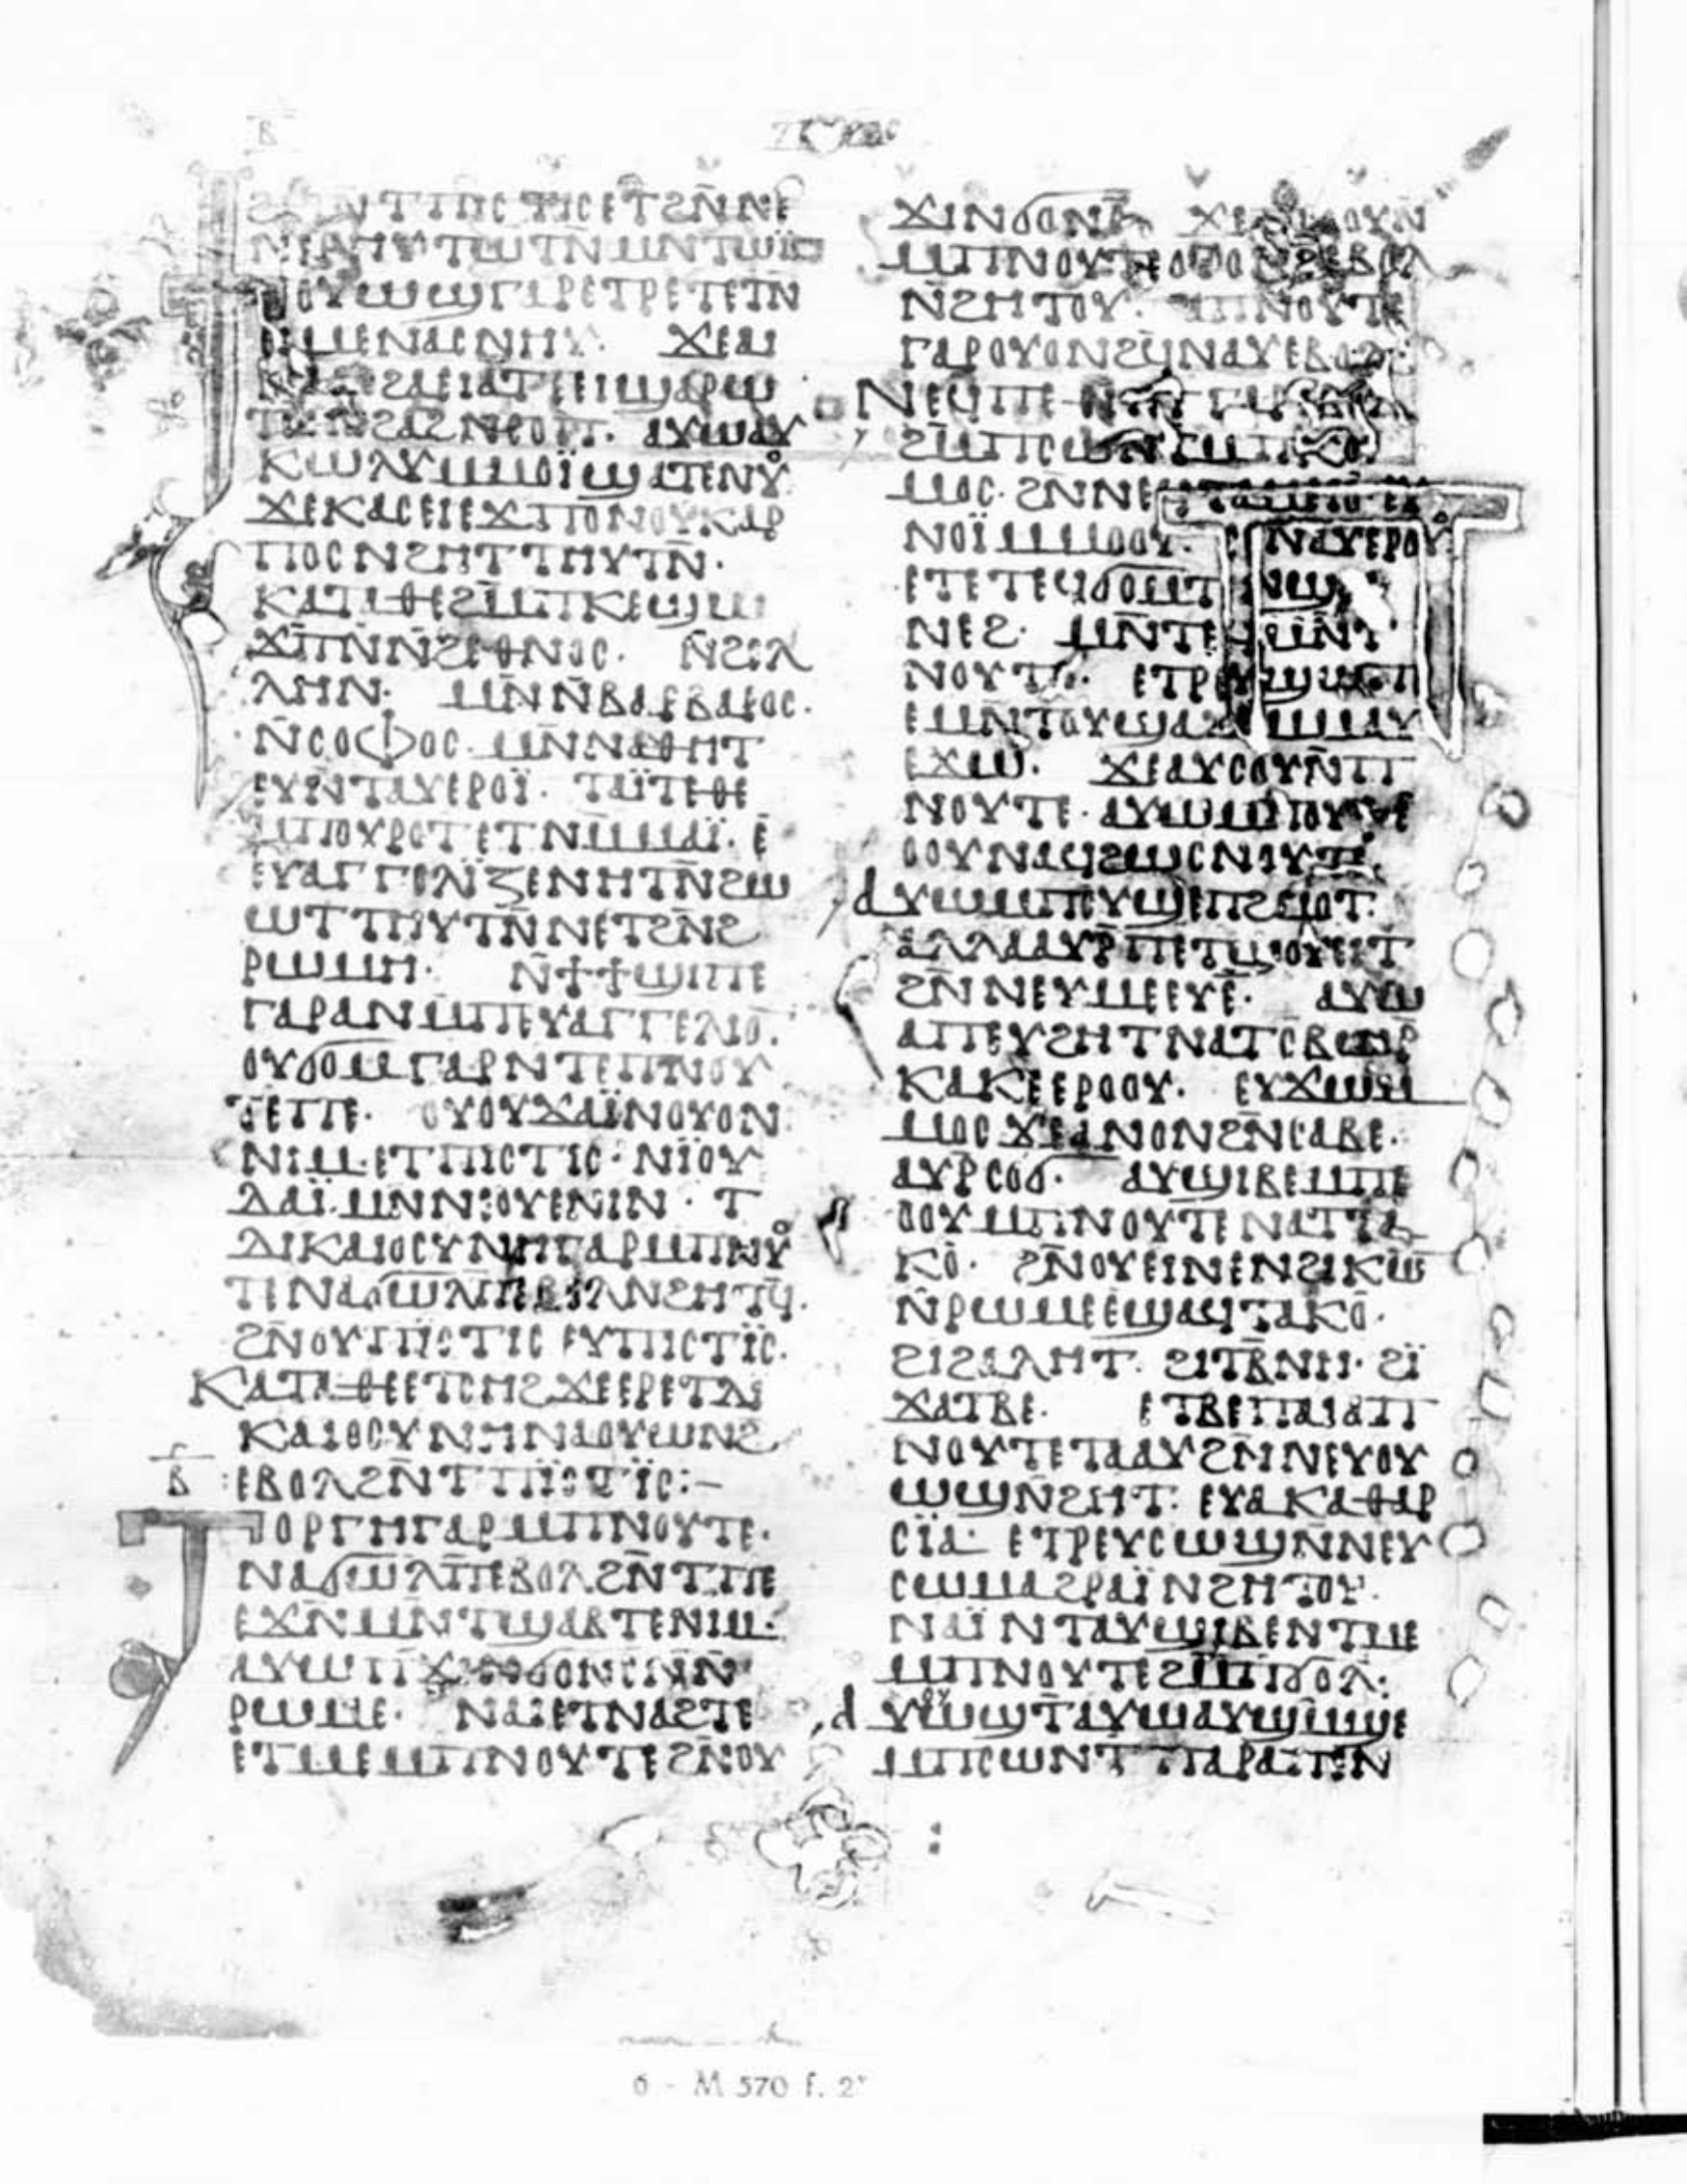 ⲃ
ϩⲓⲧⲛⲧⲡⲓⲥⲧⲓⲥⲉⲧϩⲛ̄ⲛⲉ
ⲛⲉⲣⲏⲩⲧⲱⲧⲛ̄ⲙⲛⲧⲱⲓ̈
ⲛϯⲟⲩⲱϣⲅⲁⲣⲉⲧⲣⲉⲧⲉⲧⲛ̄
ⲉⲓⲙⲉⲛⲁⲥⲛⲏⲩ· ϫⲉⲁⲓ
ⲕⲁⲁⲥϩⲁⲉⲓⲁⲧⲣⲉⲉⲓϣⲁⲣⲱ
ⲧⲛ̄ⲛ̄ϩⲁϩⲛ̄ⲥⲟⲡ· ⲁⲩⲱⲁⲩ
ⲕⲱⲗⲩⲙⲙⲟⲓ̈ϣⲁⲧⲉⲛⲟⲩ
ϫⲉⲕⲁⲥⲉⲓⲉϫⲡⲟⲛⲟⲩⲕⲁⲣ
ⲡⲟⲥⲛϩⲏⲧⲧⲏⲩⲧⲛ̄·
ⲕⲁⲧⲁⲑⲉϩⲙ̄ⲡⲕⲉϣⲱ
ϫⲡ̄ⲛ̄ⲛ̄ϩⲉⲑⲛⲟⲥ· ⲛ̄ϩⲉⲗ
ⲗⲏⲛ· ⲙⲛ̄ⲛ̄ⲃⲁⲣⲃⲁⲣⲟⲥ·
ⲛ̄ⲥⲟⲫⲟⲥ· ⲙⲛ̄ⲛⲁⲑⲏⲧ
ⲉⲩⲛ̄ⲧⲁⲩⲉⲣⲟⲓ̈· ⲧⲁⲓ̈ⲧⲉⲑⲉ
ⲙⲡⲟⲩⲣⲟⲧⲉⲧⲛⲙ̄ⲙⲁⲓ̈· ⲉ̄
ⲉⲩⲁⲅⲅⲉⲗⲓ̈ⲍⲉⲛⲏⲧⲛ̄ϩⲱ
ⲱⲧⲧⲏⲩⲧⲛ̄ⲛⲉⲧϩⲛ̄ϩ
ⲣⲱⲙⲏ· ⲛ̄ϯϯϣⲓⲡⲉ
ⲅⲁⲣⲁⲛⲙ̄ⲡⲉⲩⲁⲅⲅⲉⲗⲓⲟ̄·
ⲟⲩϭⲟⲙⲅⲁⲣⲛⲧⲉⲡⲛⲟⲩ
ⲧⲉⲧⲉ· ⲉⲩⲟⲩϫⲁⲓ̈ⲛⲟⲩⲟⲛ
ⲛⲓⲙ·ⲉⲧⲡⲓⲥⲧⲓⲥ· ⲛⲓ̈ⲟⲩ
ⲇⲁⲓ̈·ⲙⲛⲛ̄ⲟⲩⲉⲓⲛⲓⲛ· ⲧ
ⲇⲓⲕⲁⲓⲟⲥⲩⲛⲏⲅⲁⲣⲙⲡⲛⲟⲩ
ⲧⲉⲛⲁϭⲱⲗⲡ̄ⲉⲃⲟⲗⲛϩⲏⲧϥ̄·
ϩⲛ̄ⲟⲩⲡⲓⲥⲧⲓⲥ ⲉⲩⲡⲓⲥⲧⲓ̈ⲥ·
ⲕⲁⲧⲁⲑⲉⲉⲧⲥⲏϩϫⲉⲉⲣⲉⲧⲇⲓ
ⲕⲁⲓⲟⲥⲩⲛⲏⲛⲁⲟⲩⲱⲛϩ
ⲃ ⲉⲃⲟⲗϩⲛ̄ⲧⲡⲓ̈ⲥⲧⲓ̈ⲥ:–
ⲧⲟⲣⲅⲏⲅⲁⲣⲙⲡⲛⲟⲩⲧⲉ·
ⲛⲁϭⲱⲗⲡ̄ⲉⲃⲟⲗϩⲛ̄ⲧⲡⲉ
ⲉϫⲛ̄ⲙⲛ̄ⲧϣⲁϥⲧⲉⲛⲓⲙ·
ⲁⲩⲱⲡϫⲓⲛϭⲟⲛⲥⲛ̄ⲛ̄
ⲣⲱⲙⲉ· ⲛⲁⲓ̈ⲉⲧⲛⲁϩⲧⲉ
ⲉⲧⲙⲉⲙⲡⲛⲟⲩⲧⲉϩⲛ̄ⲟⲩ
ϫⲓⲛϭⲟⲛⲥ̄ ϫⲉⲡⲥⲟⲟⲩⲛ̄
ⲙⲡⲛⲟⲩⲧⲉⲟⲩⲟⲛϩⲉⲃⲟⲗ
ⲛ̄ϩⲏⲧⲟⲩ· ⲁⲡⲛⲟⲩⲧⲉ
ⲅⲁⲣⲟⲩⲟⲛϩϥⲛⲁⲩⲉⲃⲟⲗ:
ⲛⲉϥⲡⲉⲑⲏⲡⲅⲁⲣ
ϩⲙ̄ⲡⲥⲱⲛⲧⲙ̄ⲡⲕⲟⲥ
ⲙⲟⲥ· ϩⲛⲛⲉϥⲧⲁⲙⲓⲟ ⲉⲩ
ⲛⲟⲓ̈ⲙⲙⲟⲟⲩ· ⲥⲉⲛⲁⲩⲉⲣⲟⲟⲩ
ⲉⲧⲉⲧⲉϥϭⲟⲙⲧⲉⲛϣⲁ
ⲛⲉϩ· ⲙⲛ̄ⲧⲉϥⲙⲛ̄ⲧ
ⲛⲟⲩⲧⲉ· ⲉⲧⲣⲉⲩϣⲱⲡⲉ
ⲉⲙⲛ̄ⲧⲟⲩϣⲁϫⲉⲙⲙⲁⲩ
ⲉϫⲱ· ϫⲉⲁⲩⲥⲟⲩⲛ̄ⲡ
ⲛⲟⲩⲧⲉ· ⲁⲩⲱⲙ̄ⲡⲟⲩϯⲉ
ⲟⲟⲩⲛⲁϥϩⲱⲥⲛⲟⲩⲧⲉ·
ⲁⲩⲱⲙⲡⲟⲩϣⲉⲡϩⲙⲟⲧ·
ⲁⲗⲗⲁⲁⲩⲣ̄ⲡⲉⲧϣⲟⲩⲉⲓⲧ
ϩⲛ̄ⲛⲉⲩⲙⲉⲉⲩⲉ̄· ⲁⲩⲱ
ⲁⲡⲉⲩϩⲏⲧⲛⲁⲧⲥⲃⲱⲣ̄
ⲕⲁⲕⲉⲉⲣⲟⲟⲩ· ⲉⲩϫⲱⲙ
ⲙⲟⲥϫⲉⲁⲛⲟⲛϩⲛ̄ⲥⲁⲃⲉ·
ⲁⲩⲣ̄ⲥⲟϭ· ⲁⲩϣⲓⲃⲉⲙⲡⲉ
ⲟⲟⲩⲙⲡⲛⲟⲩⲧⲉⲛⲁⲧⲧⲁ
ⲕⲟ̄· ϩⲛ̄ⲟⲩⲉⲓⲛⲉⲛϩⲓⲕⲱ
ⲛ̄ⲣⲱⲙⲉⲉϣⲁϥⲧⲁⲕⲟ̄·
ϩⲓϩⲁⲗⲏⲧ· ϩⲓⲧⲃ̄ⲛⲏ· ϩⲓ̈
ϫⲁⲧⲃⲉ· ⲉⲧⲃⲉⲡⲁⲓⲁⲡ
ⲛⲟⲩⲧⲉⲧⲁⲁⲩϩⲛ̄ⲛⲉⲩⲟⲩ
ⲱϣⲛ̄ϩⲏⲧ· ⲉⲩⲁⲕⲁⲑⲁⲣ
ⲥⲓ̈ⲁ· ⲉⲧⲣⲉⲩⲥⲱϣⲛⲛⲉⲩ
ⲥⲱⲙⲁϩⲣⲁⲓ̈ⲛϩⲏⲧⲟⲩ·
ⲛⲁⲓ̈ⲛⲧⲁⲩϣⲓⲃⲉⲛⲧⲙⲉ
ⲙⲡⲛⲟⲩⲧⲉϩⲙ̄ⲡϭⲟⲗ·
ⲁⲩⲟⲩⲱϣⲧ̄ⲁⲩⲱⲁⲩϣⲙ̄ϣⲉ
ⲙⲡⲥⲱⲛⲧ̄ⲡⲁⲣⲁⲡⲉⲛ
6 - M 570 f. 2ᵛ